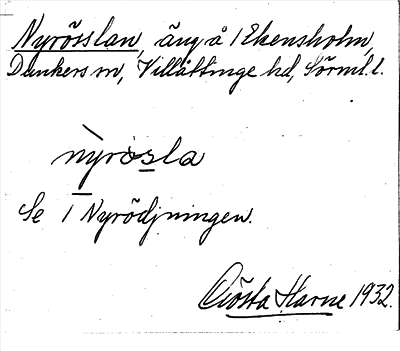 Nyrösslan, äng å 1 Ekensholm,
Dunkers sn, Villåttinge hd, Sörml. l.
nyrösla
Se 1 Nyrödjningen.
Gösta Harne 1932.